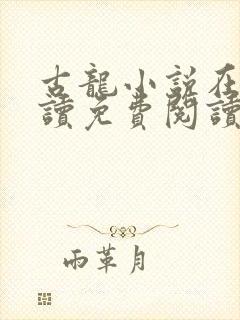 古龍小說在
讀免費閱讀
雨革月